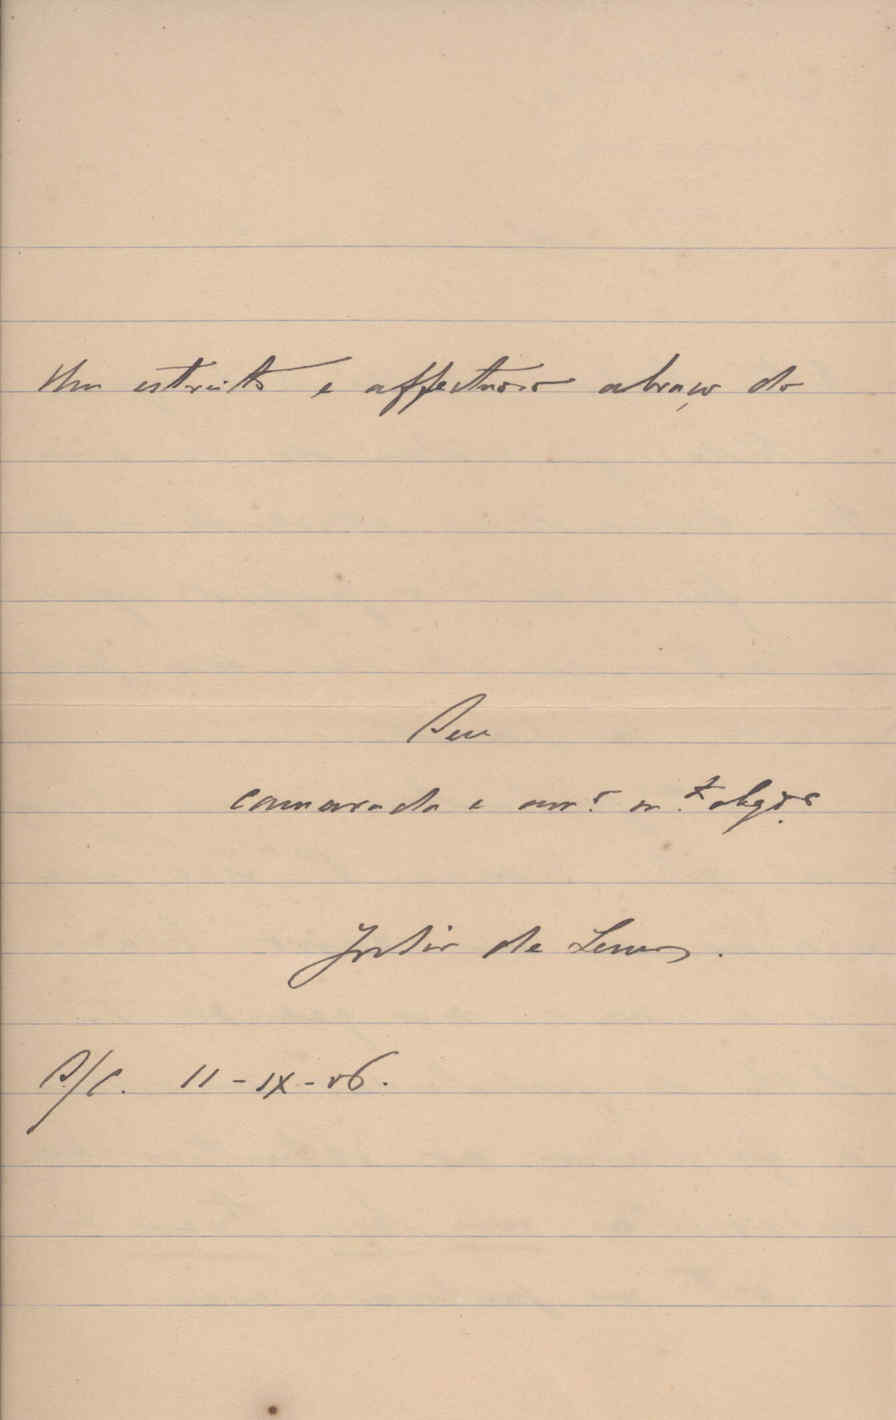 Um estreito e affectuoso abraço do
Seu
camarada e am.º m.to obgd.º
de Lemos.
S/C. 11-IX-06.